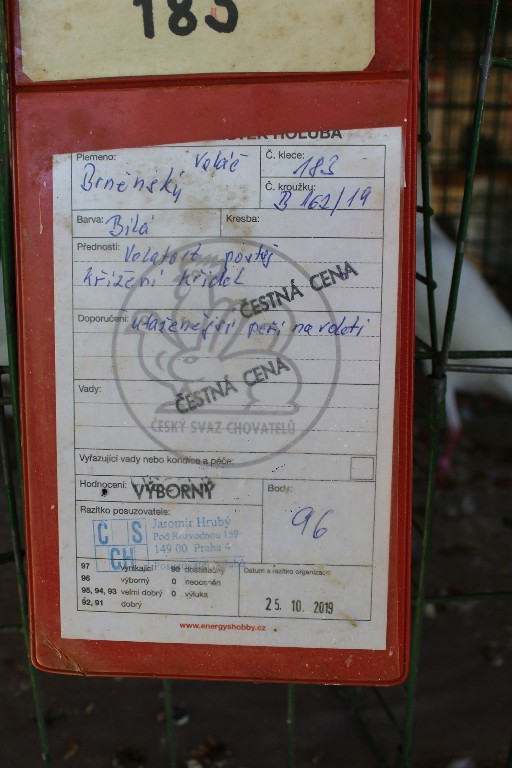 183
HOLUBA
Plemeno: Brněnský Voláč
Č. klece: 183
Č. kroužku: B 162/19
Barva: Bílá
Kresba:
Přednosti: Volatost, postoj
křížení křídel
Doporučení: utaženější peří na voleti
ČESTNÁ CENA
Vady:
ČESTNÁ CENA
ČESKÝ SVAZ CHOVATELŮ
Vyřazující vady nebo kondice a péče:
Hodnocení: VÝBORNÝ
Body: 96
Razítko posuzovatele:
ČS
CH
Jaromír Hrubý
Pod Rozvodnou 159
149 00 Praha 4
97 vynikající 90 dostatečný
96 výborný 0 neoceněn
95, 94, 93 velmi dobrý 0 výluka
92, 91 dobrý
Datum a razítko organizací
25. 10. 2019
www.energyshobby.cz